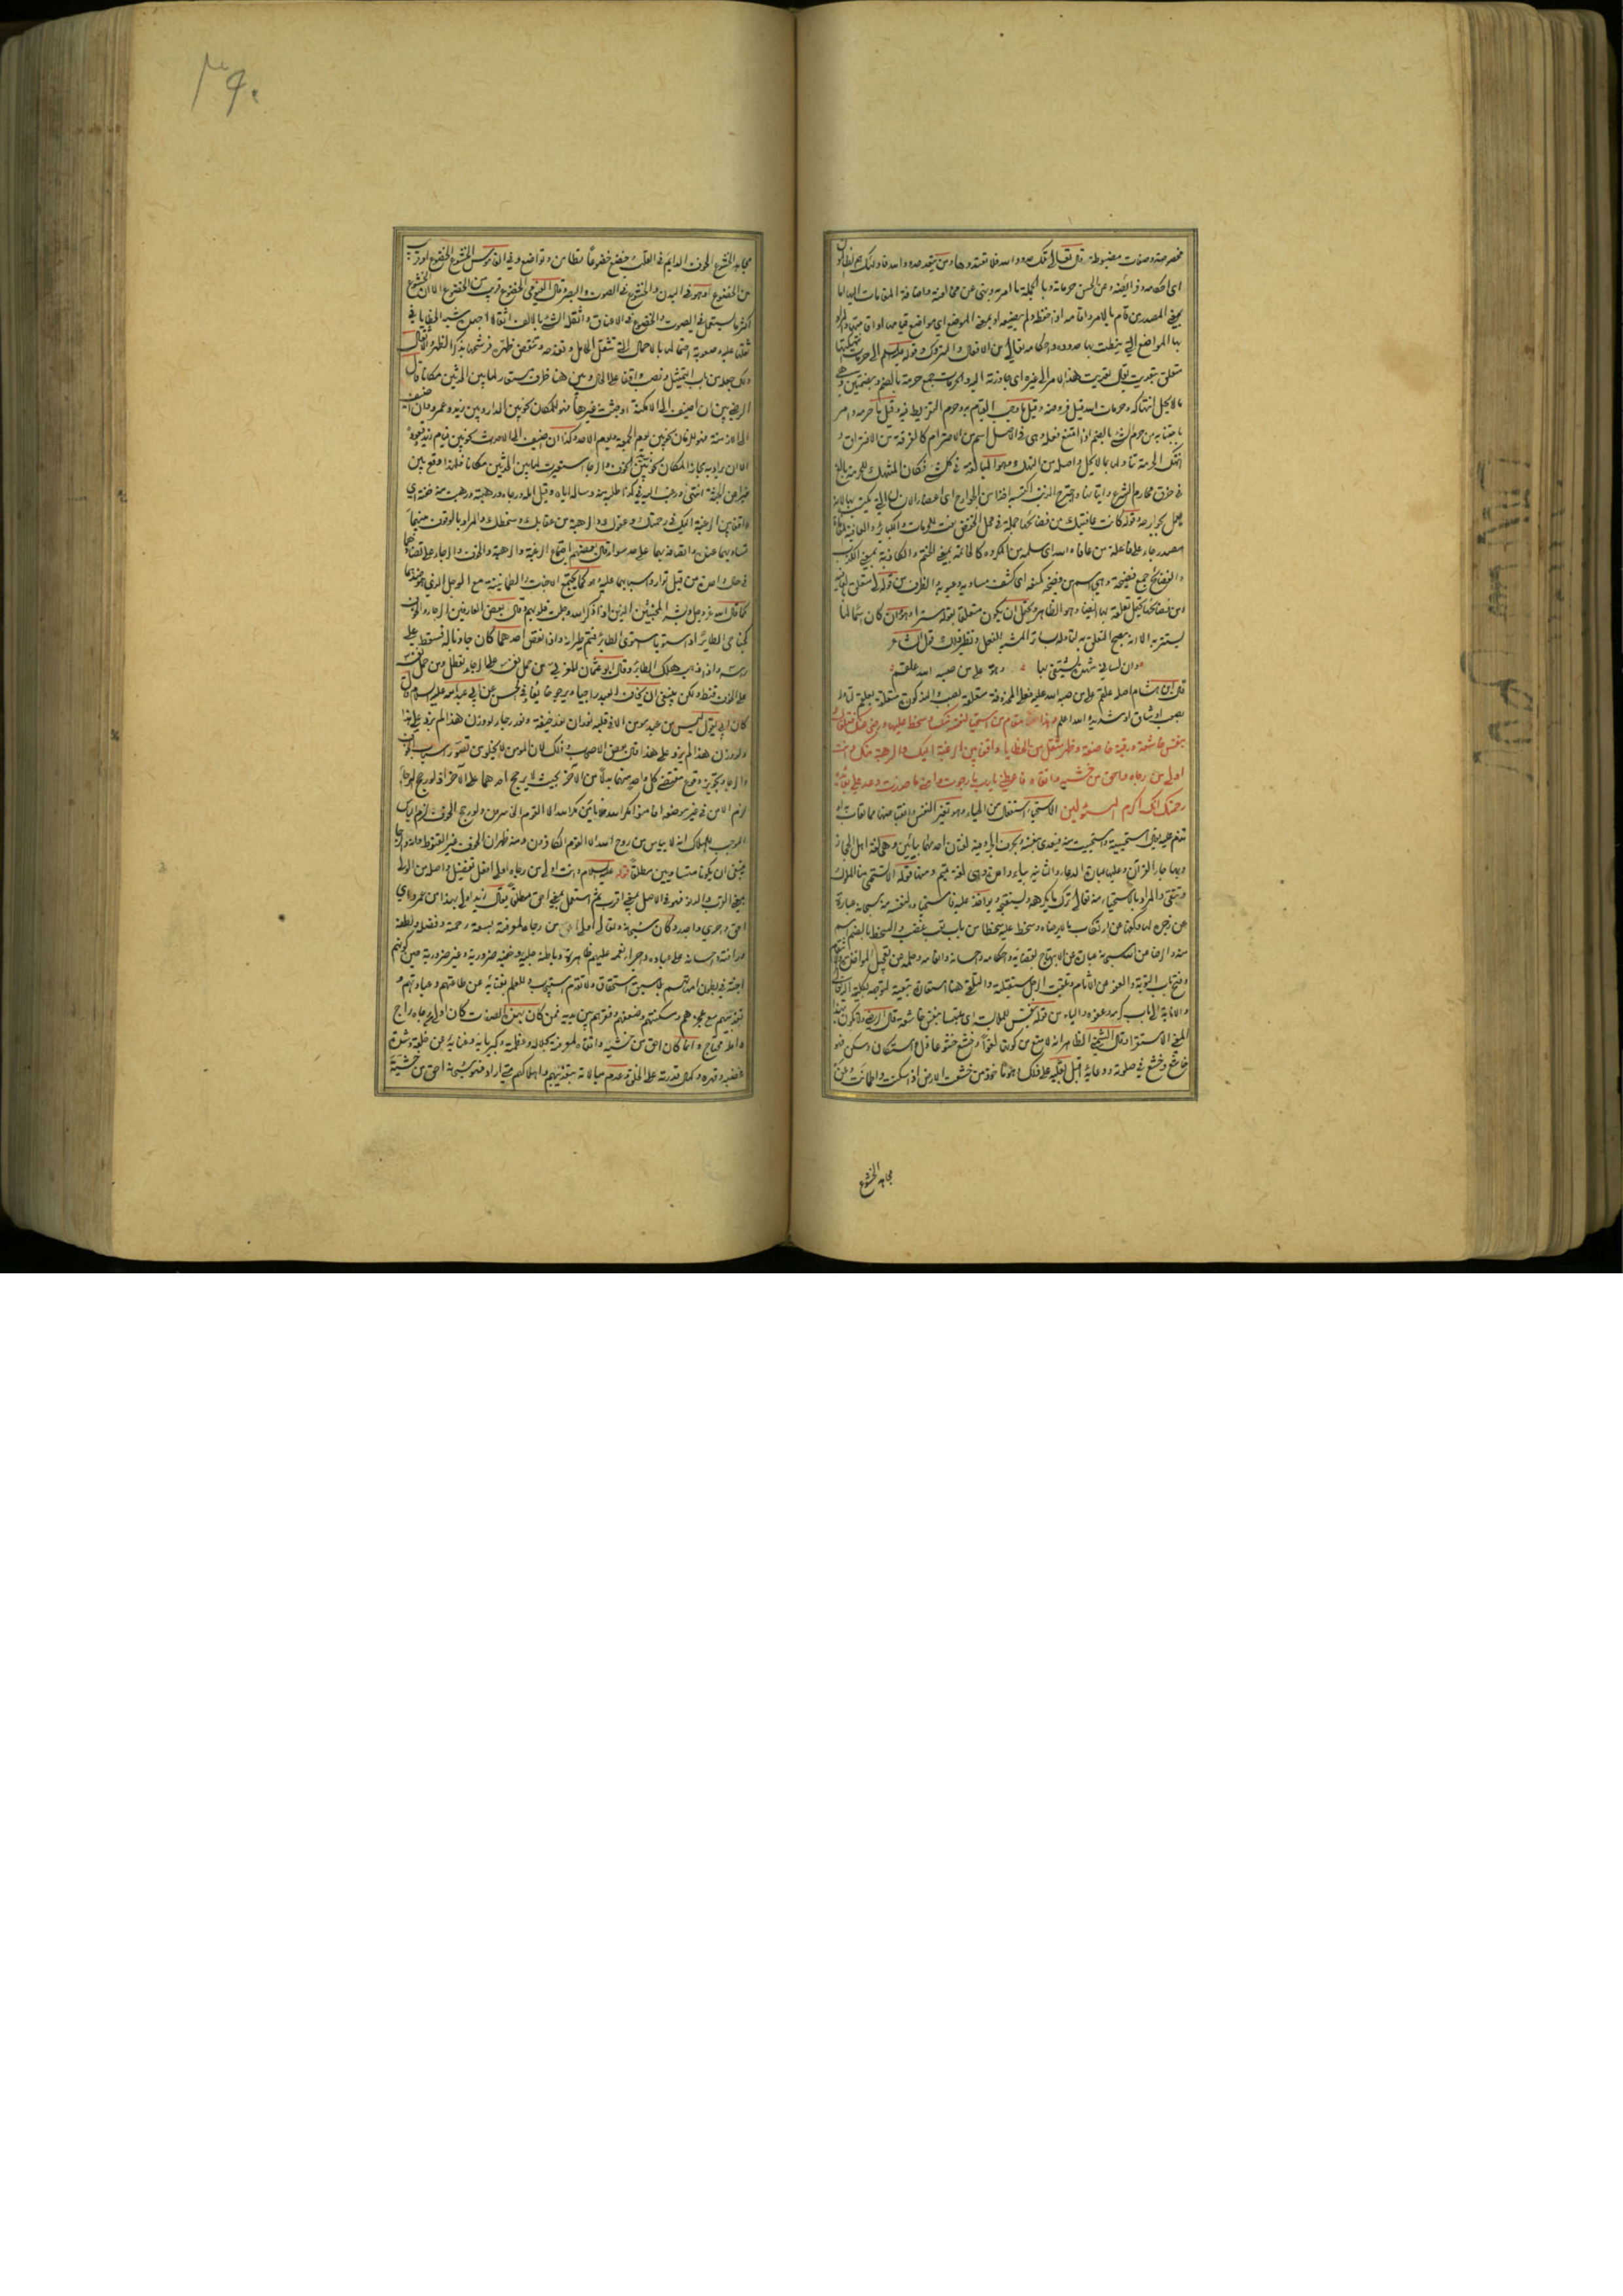 مخصوصة وصفات مضبوطة قال تعالى تلك حدود الله فلا تعتدوها ومن يتعد حدود الله فاولئك هم الظالمون
اى احكامه وفرائضه وعن الحسن حرماته وبالجملة ما امر به ونهى عن مخالفته واضافة المقامات اليها اما
بمعنى المصدر من قام بالامر واقامه اذا حفظه ولم يضيعه او بمعنى الموضع اى مواضع قيامها
بها المواضع التى نيطت بها حدوده واحكامه تعالى من الافعال والتروك وقوله عليه السلم الى حرمات انتهكتها
متعلق بتعديت يقال تعديت هذا الامر الى غيره اى جاوزته اليه والحرمات جمع حرمة بالضم وبضمتين وهى
ما لا يحل انتهاكه وحرمات الله قيل فروضه وقيل ما وجب القيام به وحرم التفريط فيه وقيل ما حرمه وامر
باجتنابه من حرم الشئ بالضم اذا امتنع فعله وهى فى الاصل اسم من الاحترام كالفرقة من الافتراق و
انتهك الحرمة تناولها بما لا يحل واصله من النهك وهو المبالغة فى كل شئ فكان المنتهك للحرمة بالغ
فى خرق محارم الشرع واتيانها واجترح الذنب اكتسبه اخذا من الجوارح اى اعضاء الانسان التى يكتسب بها لانه
يعمل بجوارحه قوله كانت عافيتك من فضائحها
مصدر جاء على فاعلة من عافاه الله اى سلمه من المكروه كالخاتمة بمعنى الختم والكاذبة بمعنى الكذب
والفضائح جمع فضيحة وهى اسم من فضحه كمنعه اى كشف مساويه وعيوبه والظرف من قوله
ومن فضائحها يحتمل تعلقه بها ايضا وهو الظاهر ويحتمل ان يكون متعلقا بقوله سترا وهو وان كان اسما لما
يستتر به الا انه يصح التعلق به لتأوله بساتر المشبه للفعل ونظير ذلك قول الشاعر
وان لسانى شهدة يشتفى بها وهو على من صبه الله علقم
قال ابن هشام اصله علقم على من صبه الله عليه فعلى المحذوفة متعلقة بصب والمذكورة متعلقة بعلقم لتأوله
بصعب او شاق او شديد والله اعلم وهذا مقام من استحيا لنفسه منك وسخط عليها ورضى عنك فتلقاك
بنفس خاشعة ورقبة خاضعة وظهر مثقل من الخطايا واقفا بين الرغبة اليك والرهبة منك وانت
اولى من رجاه واحق من خشيه واتقاه فاعطنى يا رب ما رجوت وامنى ما حذرت وعد على بعائدة
رحمتك انك اكرم المسئولين الاستحياء استفعال من الحياء وهو تغير النفس وانقباضها مما يعاب او
تذم عليه يقال استحييته واستحييت منه فيتعدى بنفسه وبحرف الجر وفيه لغتان احدهما بيائين وهى لغة اهل الحجاز
وبها جاء القرآن وعليها عبارة الدعاء والثانية بياء واحدة وهى لغة تميم
عن زجره لها وكفها عن ارتكاب ما لا يرضاه وسخط عليه سخطا من باب تعب غضب والسخط بالضم اسم
منه والرضا من الله سبحانه عبارة عن الابتهاج بقضائه واحكامه
وفتح باب التوبة والعفو عن الآثام
والانابة الى باب كرمه وعفوه والباء من قوله بنفس للملابسة اى ملتبسا بنفس خاشعة قال الرضى ولا تكون بهذا
المعنى الا مستقرا وقال الشمنى الظاهر انه لا منع من كونها لغوا وخشع خشوعا ذل واستكان وسكن فهو
خاشع وخشع فى صلوته ودعائه اقبل بقلبه على ذلك ماخوذ من خشعت الارض اذا سكنت واطمانت وعن
مجاهد الخشوع
٣٩٠
مجاهد الخشوع الخوف الدايم فى القلب وخضع خضوعا تطامن وتواضع وفى القاموس الخشوع الخضوع او قريب
من الخضوع او هو فى البدن والخشوع فى الصوت والبصر وقال الفيومى الخضوع قريب من الخشوع الا ان الخشوع
اكثر ما يستعمل فى الصوت والخضوع فى الاعناق واثقله الشئ بالالف اثقالا اجهده شبه الخطايا فى
ثقلها عليه وصعوبة احتمالها بالاحمال التى تثقل الحامل وتفدحه وتنقض ظهره فرشحها بذكر الظهر والاثقال
ولك جعله من باب التمثيل ونصب واقفا على الحال وبين هنا ظرف مستعار لما بين الحدثين مكانا قال
الرضى بين ان اضيف الى الامكنة او جثث غيرها فهو للمكان نحو بين الدار وبين زيد وعمرو وان اضيف
الى الازمنة فهو للزمان نحو بين يوم الجمعة ويوم الاحد وكذا ان اضيف الى الاحداث نحو بين قيام زيد وقعوده
الا ان يراد به مجازا المكان نحو زيد بين الخوف والرجاء استعيرت لما بين الحدثين مكانا فلهذا وقع بين
خبرا عن الجثة انتهى ورغبت اليه فى كذا طلبته وسألته اياه وقيل امله ورجاه ورهبته ورهبت منه خفته اى
واقفا بين الرغبة اليك فى رحمتك وعفوك والرهبة من عقابك وسخطك والمراد بالوقوف بينهما
تساويهما عنده واتصافه بهما على حد سواء قال بعضهم اجتماع الرغبة والرهبة والخوف والرجاء على تضادهما
فى حالة واحدة من قبيل توارد سببهما عليه وهو كما يجتمع الاخبات والطمانينة مع الوجل الذى هو ضدها
كما قال الله عز وجل وبشر المخبتين الذين اذا ذكر الله وجلت قلوبهم وقال بعض العارفين الرجاء والخوف
كجناحى الطاير اذا استويا استوى الطاير فتم طيرانه واذا نقص احدهما كان جاذبا له فسقط على
راسه واذا ذهبا هلك الطائر وقال ابو عثمان المغربى من حمل نفسه على الرجاء تعطل ومن حمل نفسه
على الخوف قنط ولكن ينبغى ان يخاف العبد راجيا ويرجو خائفا وفى الحسن عن ابى عبد الله عليه السلام قال
كان ابى يقول ليس من عبد مؤمن الا فى قلبه نوران نور خيفة ونور رجاء لو وزن هذا لم يزد على هذا
ولو وزن هذا لم يزد على هذا قال بعض الاصحاب وذلك لان المؤمن لا يخلو من تصور اسباب الخوف
والرجاء وتجويز وقوع مقتضى كل واحد منهما بدلا من الآخر بحيث لا يرجح احدهما على الآخر اذ لو رجح الرجاء
لزم الامن فى غير موضعه افامنوا مكر الله فلا يأمن مكر الله الا القوم الخاسرون ولو رجح الخوف لزم اليأس
الموجب للهلاك انه لا ييأس من روح الله الا القوم الكافرون ومنه ظهر ان الخوف غير القنوط وانه والرجاء
ينبغى ان يكونا متساويين مطلقا قوله عليه السلام وانت اولى من رجاه اولى افعل تفضيل واصله من الولى
بمعنى القرب والدنو فهو فى الاصل بمعنى اقرب ثم استعمل بمعنى احق مطلقا يقال زيد اولى بهذا من عمرو اى
احق واحرى واجدر وكان سبحانه وتعالى اولى من رجاه لمعرفته بسعة رحمته وفضله ولطفه
ورافته واحسانه على عباده واجراء نعمه عليهم ظاهرة وباطنة جلية وخفية ضرورية وغير ضرورية
اجنة فى بطون امهاتهم من غير سبق استحقاق ولا تقدم استيجاب وللعلم بغنائه عن طاعتهم وعباداتهم و
تعذيبهم مع عجزهم ومسكنتهم وضعفهم وفقرهم بين يديه فمن كان بهذه الصفات كان اولى من رجاه راج
وامله محتاج وانما كان احق من خشيه واتقاه لمعرفته بجلاله وعظمته وكبريائه وغنائه عن خلقه وشدة
غضبه وقهره وكمال قدرته على الخلق وعدم مبالاته بتعذيبهم واهلاكهم متى اراد فهو سبحانه احق من خشيته